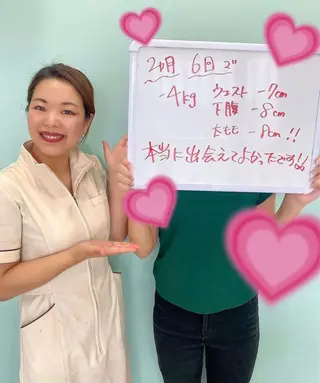 2ヶ月 6回で
-4kg ウエスト -7cm
下腹 -8cm
太もも -8cm!!
本当に出会えてよかったです!!